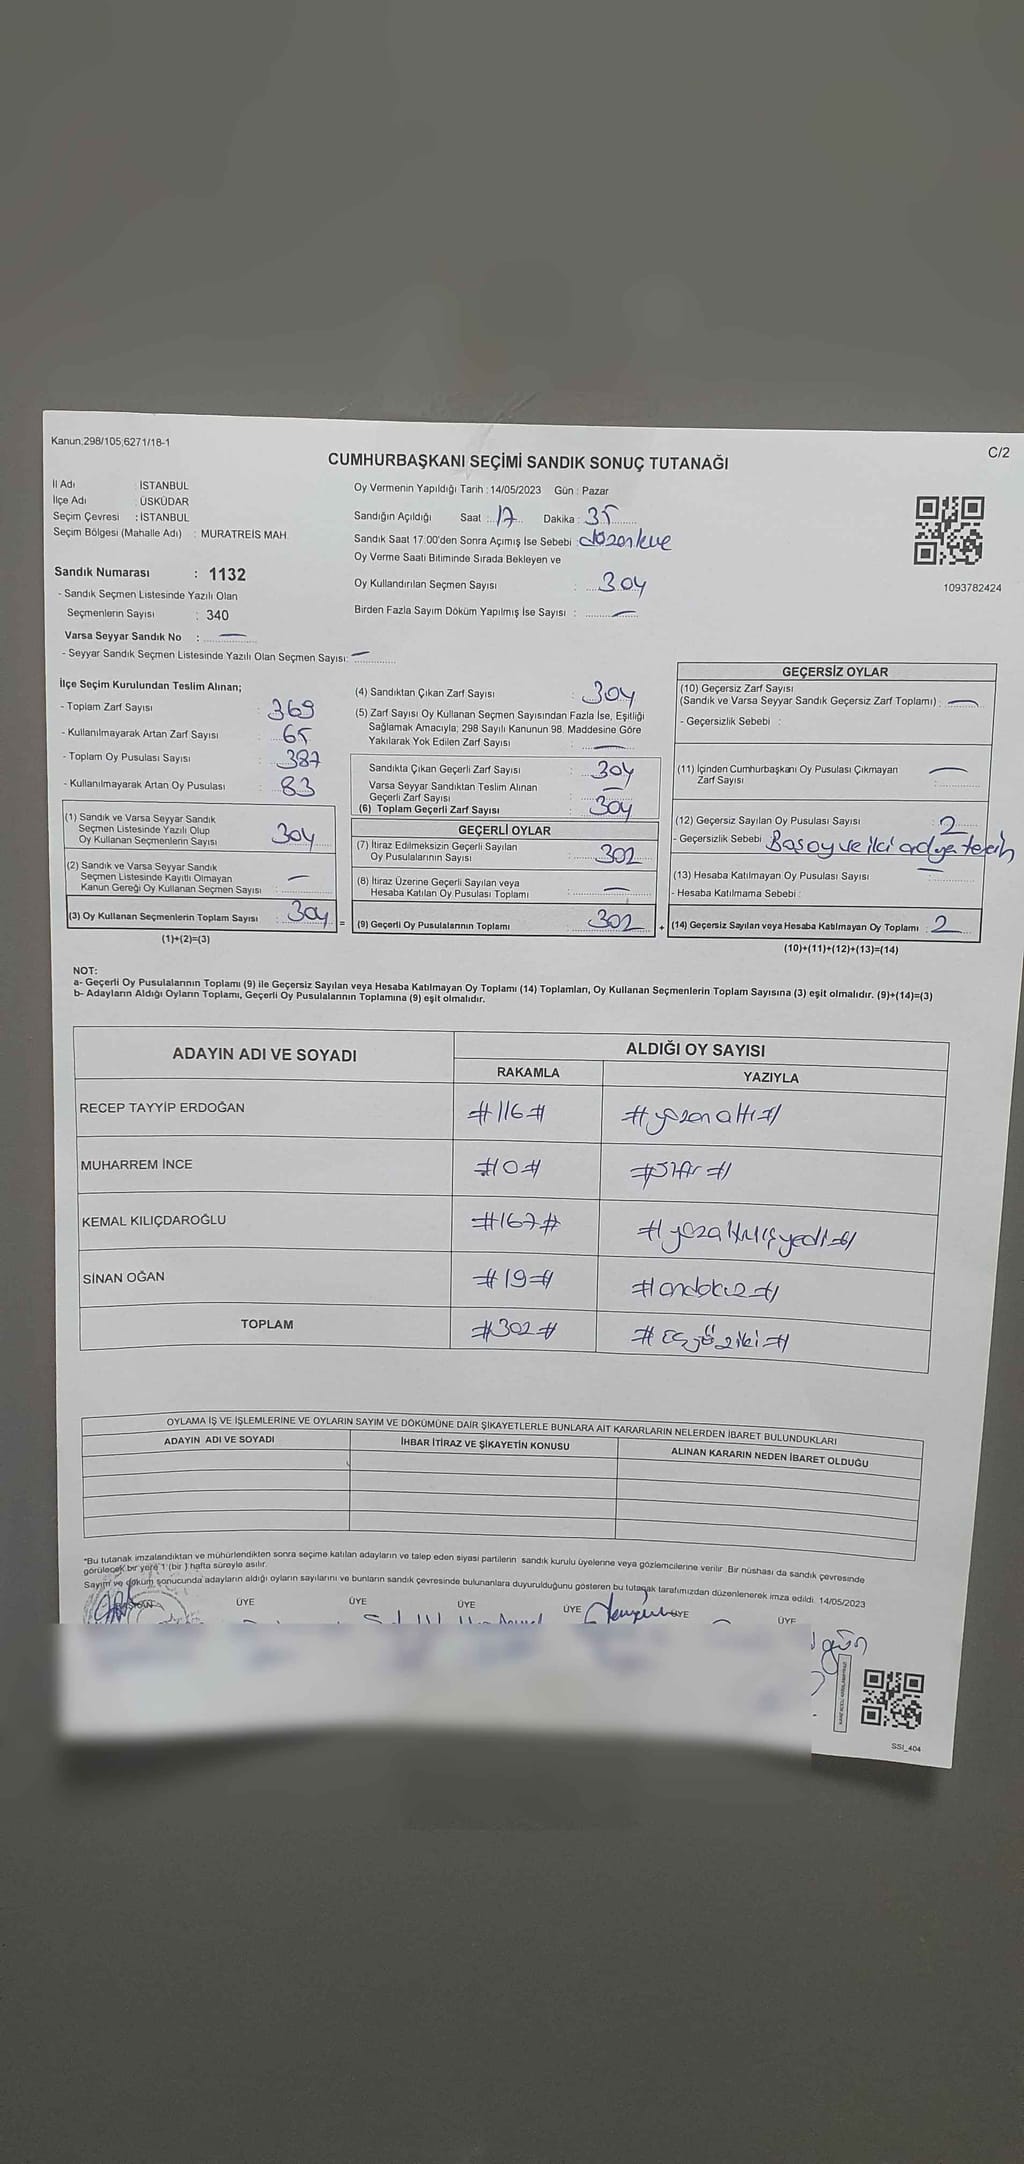 Kanun,298/105,6271/18-1
C/2
CUMHURBAŞKANI SEÇİMİ SANDIK SONUÇ TUTANAĞI
İl Adı : İSTANBUL
İlçe Adı : ÜSKÜDAR
Seçim Çevresi : İSTANBUL
Seçim Bölgesi (Mahalle Adı) : MURATREİS MAH.
Oy Vermenin Yapıldığı Tarih : 14/05/2023 Gün : Pazar
Sandığın Açıldığı Saat : 17 Dakika : 35
Sandık Saat 17:00'den Sonra Açımış İse Sebebi :
Oy Verme Saati Bitiminde Sırada Bekleyen ve
Oy Kullandırılan Seçmen Sayısı : 304
Birden Fazla Sayım Döküm Yapılmış İse Sayısı : —
1093782424
Sandık Numarası : 1132
- Sandık Seçmen Listesinde Yazılı Olan
Seçmenlerin Sayısı : 340
Varsa Seyyar Sandık No : —
- Seyyar Sandık Seçmen Listesinde Yazılı Olan Seçmen Sayısı: —
İlçe Seçim Kurulundan Teslim Alınan;
- Toplam Zarf Sayısı : 369
- Kullanılmayarak Artan Zarf Sayısı : 65
- Toplam Oy Pusulası Sayısı : 387
- Kullanılmayarak Artan Oy Pusulası : 83
(1) Sandık ve Varsa Seyyar Sandık
Seçmen Listesinde Yazılı Olup
Oy Kullanan Seçmenlerin Sayısı : 304
(2) Sandık ve Varsa Seyyar Sandık
Seçmen Listesinde Kayıtlı Olmayan
Kanun Gereği Oy Kullanan Seçmen Sayısı : —
(3) Oy Kullanan Seçmenlerin Toplam Sayısı : 304 =
(1)+(2)=(3)
(4) Sandıktan Çıkan Zarf Sayısı : 304
(5) Zarf Sayısı Oy Kullanan Seçmen Sayısından Fazla İse, Eşitliği
Sağlamak Amacıyla; 298 Sayılı Kanunun 98. Maddesine Göre
Yakılarak Yok Edilen Zarf Sayısı : —
Sandıkta Çıkan Geçerli Zarf Sayısı : 304
Varsa Seyyar Sandıktan Teslim Alınan
Geçerli Zarf Sayısı : —
(6) Toplam Geçerli Zarf Sayısı : 304
GEÇERLİ OYLAR
(7) İtiraz Edilmeksizin Geçerli Sayılan
Oy Pusulalarının Sayısı : 302
(8) İtiraz Üzerine Geçerli Sayılan veya
Hesaba Katılan Oy Pusulası Toplamı : —
(9) Geçerli Oy Pusulalarının Toplamı : 302 +
GEÇERSİZ OYLAR
(10) Geçersiz Zarf Sayısı
(Sandık ve Varsa Seyyar Sandık Geçersiz Zarf Toplamı) : —
- Geçersizlik Sebebi :
(11) İçinden Cumhurbaşkanı Oy Pusulası Çıkmayan
Zarf Sayısı : —
(12) Geçersiz Sayılan Oy Pusulası Sayısı : 2
- Geçersizlik Sebebi : Boş oy ve iki
(13) Hesaba Katılmayan Oy Pusulası Sayısı : —
- Hesaba Katılmama Sebebi :
(14) Geçersiz Sayılan veya Hesaba Katılmayan Oy Toplamı : 2
(10)+(11)+(12)+(13)=(14)
NOT:
a- Geçerli Oy Pusulalarının Toplamı (9) ile Geçersiz Sayılan veya Hesaba Katılmayan Oy Toplamı (14) Toplamları, Oy Kullanan Seçmenlerin Toplam Sayısına (3) eşit olmalıdır. (9)+(14)=(3)
b- Adayların Aldığı Oyların Toplamı, Geçerli Oy Pusulalarının Toplamına (9) eşit olmalıdır.
ADAYIN ADI VE SOYADI ALDIĞI OY SAYISI
RAKAMLA YAZIYLA
RECEP TAYYİP ERDOĞAN #116# #yüzonaltı#
MUHARREM İNCE #0# #sıfır#
KEMAL KILIÇDAROĞLU #167# #yüzaltmışyedi#
SİNAN OĞAN #19# #ondokuz#
TOPLAM #302# #üçyüziki#
OYLAMA İŞ VE İŞLEMLERİNE VE OYLARIN SAYIM VE DÖKÜMÜNE DAİR ŞİKAYETLERLE BUNLARA AİT KARARLARIN NELERDEN İBARET BULUNDUKLARI
ADAYIN ADI VE SOYADI İHBAR İTİRAZ VE ŞİKAYETİN KONUSU ALINAN KARARIN NEDEN İBARET OLDUĞU
*Bu tutanak imzalandıktan ve mühürlendikten sonra seçime katılan adayların ve talep eden siyasi partilerin sandık kurulu üyelerine veya gözlemcilerine verilir. Bir nüshası da sandık çevresinde
görülecek bir yere 1 (bir ) hafta süreyle asılır.
Sayım ve döküm sonucunda adayların aldığı oyların sayılarını ve bunların sandık çevresinde bulunanlara duyurulduğunu gösteren bu tutanak tarafımızdan düzenlenerek imza edildi. 14/05/2023
ÜYE ÜYE ÜYE ÜYE ÜYE ÜYE
SSI_404